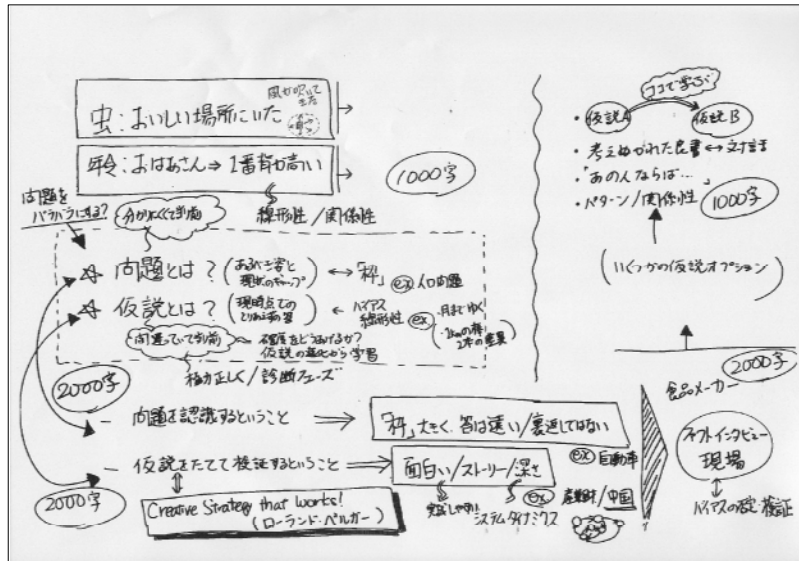 虫：おいしい場所にいた
風が吹いてきた
年令：おばあさん⇒1番背が高い
1000字
線形性/関係性
問題を
バラバラにする?
分かりにくくて当り前
☆ 問題とは？(あるべき姿と現状のギャップ) ↔「枠」 ex 人口問題
☆ 仮説とは？(現時点でのとりあえずの答) ← バイアス 線形性 ex
・月まで ゆく!
・2kmの棒
2本の
間違っていて当り前
確度をどう上げるか?
仮説の進化から学習
極力正しく/診断フェーズ
2000字
— 問題を認識するということ ⇒「枠」大きく、答は遠い/裏返しではない
ex 自動車
— 仮説をたてて検証するということ ⇒ 面白い/ストーリー/深さ
ex 産業財/中国
実践しやすい!
システムダイナミクス
2000字
Creative Strategy that works!
(ローランド・ベルガー)
ココで学ぶ
・仮説A 仮説B
・考えぬかれた良書↔対話
・「あの人ならば…」
・パターン/関係性
1000字
(いくつかの仮説オプション)
2000字
食品メーカー
ファクトインタビュー
現場
バイアスの否定・検証